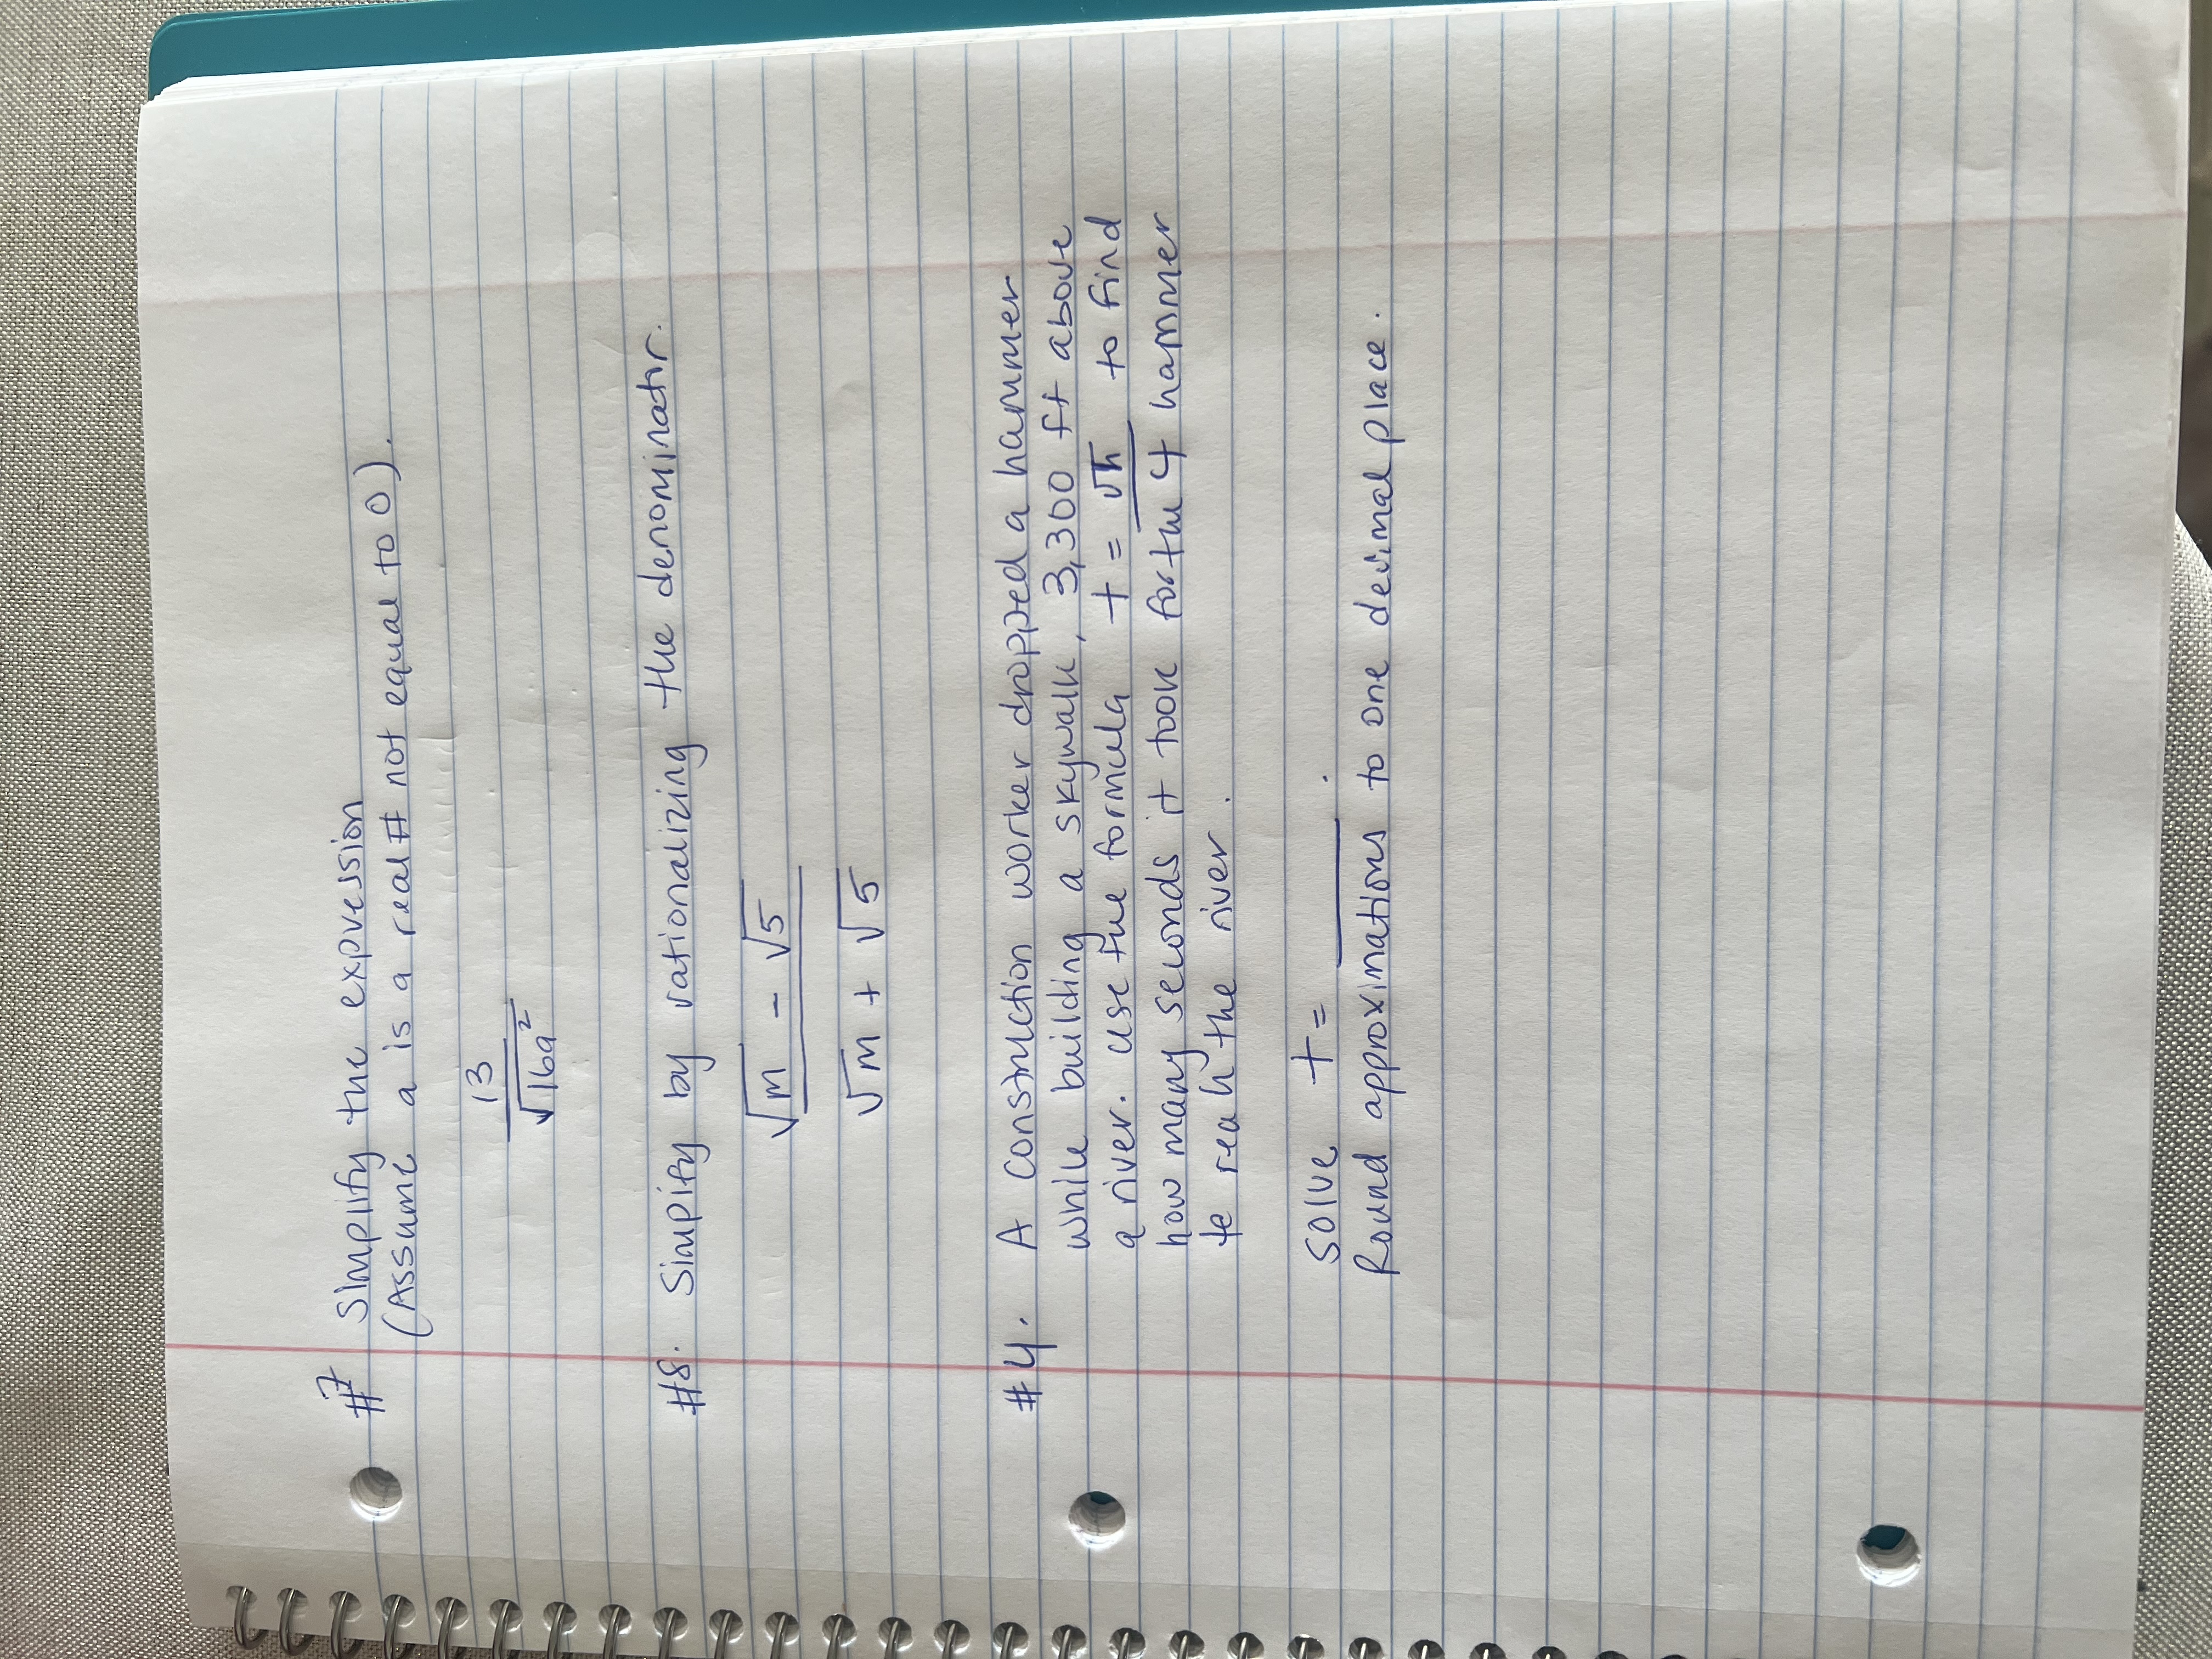 #7 Simplify the expression
(Assume a is a real # not equal to 0).
13
√16a²
#8. Simplify by rationalizing the denominator.
√m - √5
√m + √5
#4. A construction worker dropped a hammer
while building a skywalk, 3,300 ft above
a river. use the formula t = √h to find
how many seconds it took for the 4 hammer
to reach the river.
solve t = ____.
Round approximations to one decimal place.